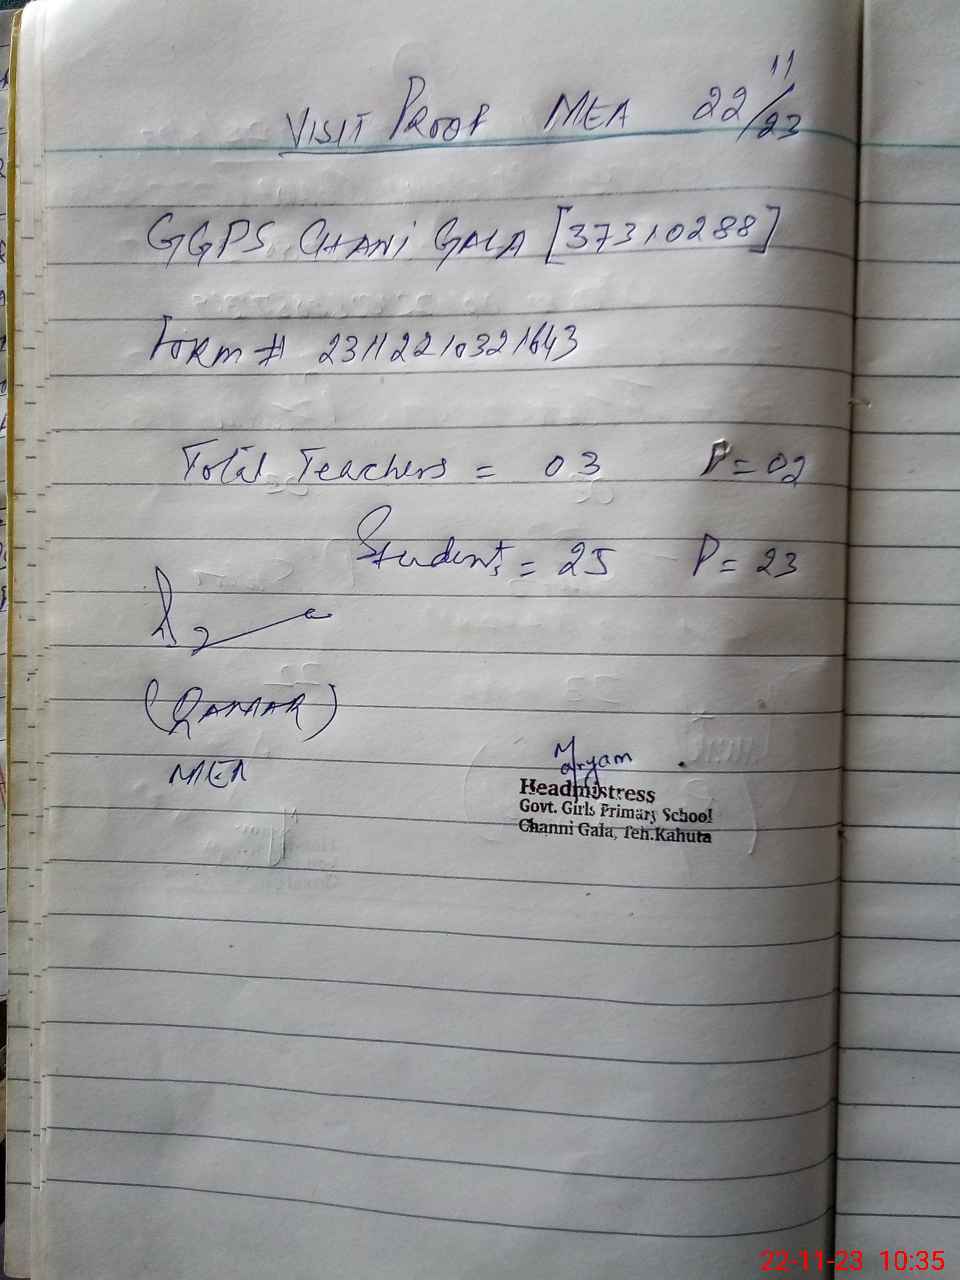 VISIT PROOF MEA 22/11/23
GGPS CHANI GALA [37310288]
FORM # 23112210321643
Total Teachers = 03 P=02
Students = 25 P= 23
(QAMAR)
MEA
Maryam
Headmistress
Govt. Girls Primary School
Channi Gala, Teh.Kahuta
22-11-23 10:35